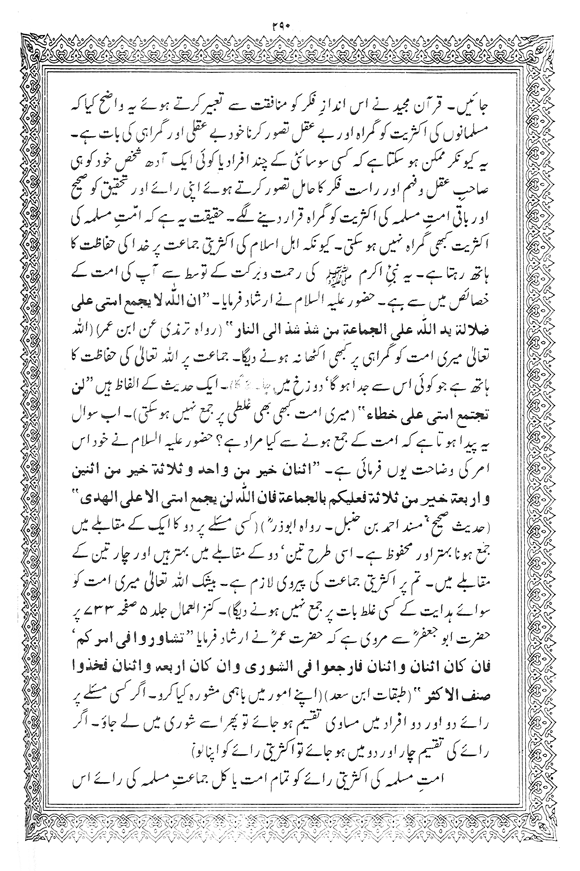 ۲۹۰
جائیں۔ قرآن مجید نے اس اندازِ فکر کو منافقت سے تعبیر کرتے ہوئے یہ واضح کیا کہ
مسلمانوں کی اکثریت کو گمراہ اور بے عقل تصور کرنا خود بے عقلی اور گمراہی کی بات ہے۔
یہ کیونکر ممکن ہو سکتا ہے کہ کسی سوسائٹی کے چند افراد یا کوئی ایک آدھ شخص خود کو ہی
صاحبِ عقل و فہم اور راست فکر کا حامل تصور کرتے ہوئے اپنی رائے اور تحقیق کو صحیح
اور باقی امتِ مسلمہ کی اکثریت کو گمراہ قرار دینے لگے۔ حقیقت یہ ہے کہ امّتِ مسلمہ کی
اکثریت کبھی گمراہ نہیں ہو سکتی۔ کیونکہ اہل اسلام کی اکثریتی جماعت پر خدا کی حفاظت کا
ہاتھ رہتا ہے۔ یہ نبیٔ اکرم ﷺ کی رحمت و برکت کے توسط سے آپ کی امت کے
خصائص میں سے ہے۔ حضور علیہ السلام نے ارشاد فرمایا۔ ”ان اللّٰہ لا یجمع امتی علی
ضلالۃ ید اللّٰہ علی الجماعۃ من شذ شذ الی النار“ (رواہ ترمذی عن ابن عمر) (اللہ
تعالیٰ میری امت کو گمراہی پر کبھی اکٹھا نہ ہونے دیگا۔ جماعت پر اللہ تعالیٰ کی حفاظت کا
ہاتھ ہے جو کوئی اس سے جدا ہو گا‘ دوزخ میں)۔ ایک حدیث کے الفاظ ہیں ”لن
تجتمع امتی علی خطاء“ (میری امت کبھی بھی غلطی پر جمع نہیں ہو سکتی)۔ اب سوال
یہ پیدا ہوتا ہے کہ امت کے جمع ہونے سے کیا مراد ہے؟ حضور علیہ السلام نے خود اس
امر کی وضاحت یوں فرمائی ہے۔ ”اثنان خیر من واحد و ثلاثۃ خیر من اثنین
واربعۃ خیر من ثلاثۃ فعلیکم بالجماعۃ فان اللّٰہ لن یجمع امتی الا علی الھدی“
(حدیث صحیح‘ مسند احمد بن حنبل۔ رواہ ابوذرؓ) (کسی مسئلے پر دو کا ایک کے مقابلے میں
جمع ہونا بہتر اور محفوظ ہے۔ اسی طرح تین‘ دو کے مقابلے میں بہتر ہیں اور چار تین کے
مقابلے میں۔ تم پر اکثریتی جماعت کی پیروی لازم ہے۔ بیشک اللہ تعالیٰ میری امت کو
سوائے ہدایت کے کسی غلط بات پر جمع نہیں ہونے دیگا)۔ کنز العمال جلد ۵ صفحہ ۷۳۳ پر
حضرت ابو جعفرؓ سے مروی ہے کہ حضرت عمرؓ نے ارشاد فرمایا ”تشاوروا فی امرکم‘
فان کان اثنان واثنان فارجعوا فی الشوری وان کان اربعہ واثنان فخذوا
صنف الاکثر“ (طبقات ابن سعد) (اپنے امور میں باہمی مشورہ کیا کرو۔ اگر کسی مسئلے پر
رائے دو اور دو افراد میں مساوی تقسیم ہو جائے تو پھر اسے شوریٰ میں لے جاؤ۔ اگر
رائے کی تقسیم چار اور دو میں ہو جائے تو اکثریتی رائے کو اپنا لو)
امتِ مسلمہ کی اکثریتی رائے کو تمام امت یا کل جماعتِ مسلمہ کی رائے اس